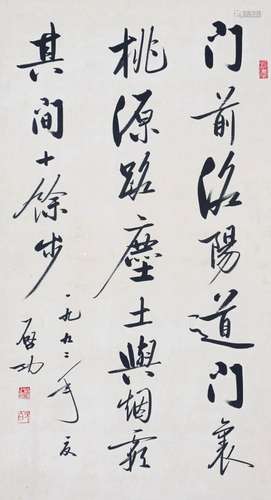 门前洛陽道门裏
桃源路塵土與烟霞
其间十餘步
一九九二年夏
启功